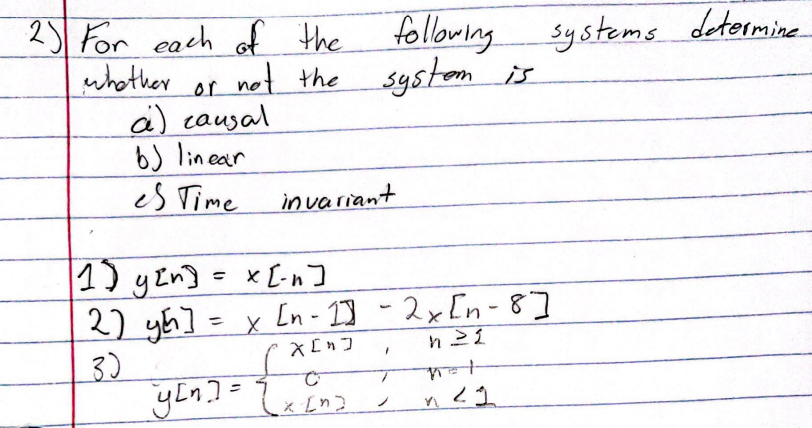 2) For each of the following systems determine
whether or not the system is
a) causal
b) linear
c) Time invariant
1) y[n] = x[-n]
2) y[n] = x[n-1] - 2x[n-8]
3)
x[n] , n ≥ 1
0 , n = 1
y[n] = { x[n] , n < 1